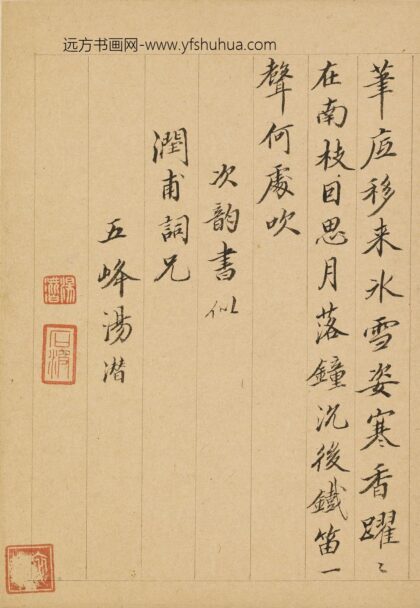 远方书画网-www.yfshuhua.com
筆底移来氷雪姿寒香躍〻
在南枝因思月落鐘沉後鐵笛一
聲何處吹
次韵書似
潤甫詞兄
五峰湯潜